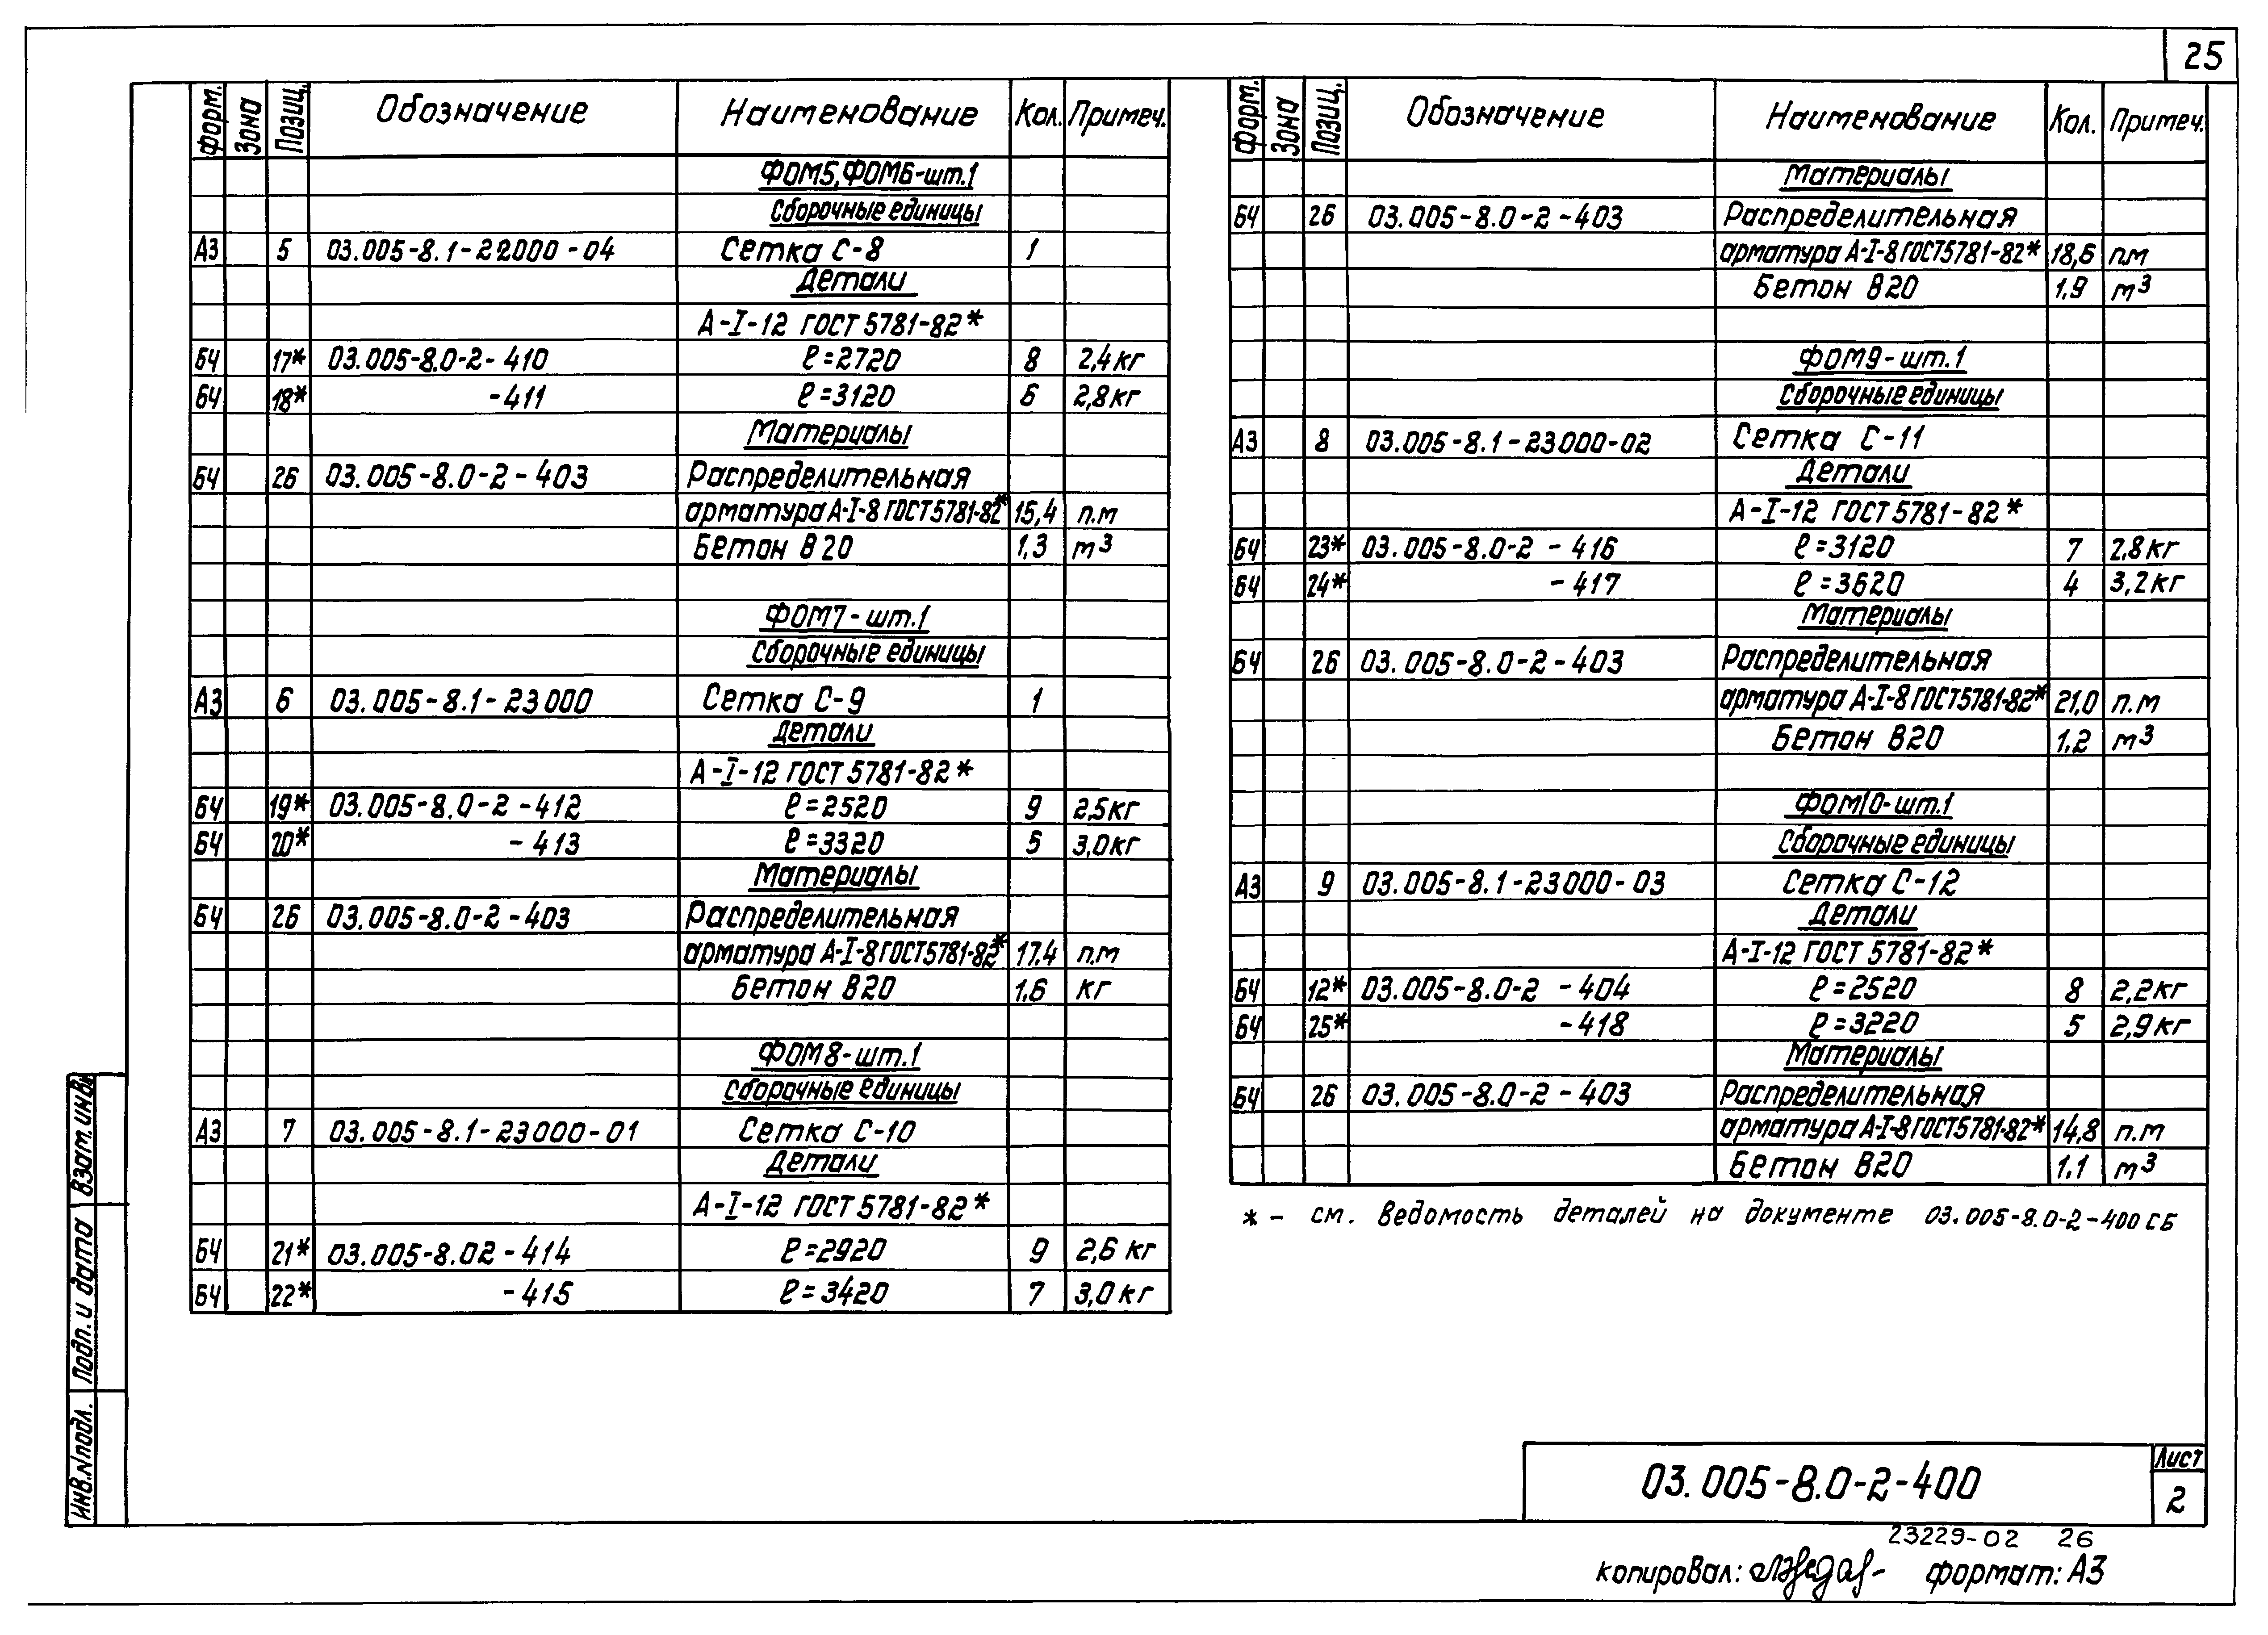 25
Форм. Зона Позиц. Обозначение Наименование Кол. Примеч.
ФОМ5, ФОМ6-шт.1
Сборочные единицы
А3 5 03.005-8.1-22000-04 Сетка С-8 1
Детали
А-I-12 ГОСТ 5781-82*
БЧ 17* 03.005-8.0-2-410 ℓ=2720 8 2,4кг
БЧ 18* -411 ℓ=3120 6 2,8кг
Материалы
БЧ 26 03.005-8.0-2-403 Распределительная
арматура А-I-8 ГОСТ5781-82* 15,4 п.м
Бетон В20 1,3 м3
ФОМ7-шт.1
Сборочные единицы
А3 6 03.005-8.1-23000 Сетка С-9 1
Детали
А-I-12 ГОСТ 5781-82*
БЧ 19* 03.005-8.0-2-412 ℓ=2520 9 2,5кг
БЧ 20* -413 ℓ=3320 5 3,0кг
Материалы
БЧ 26 03.005-8.0-2-403 Распределительная
арматура А-I-8 ГОСТ5781-82* 17.4 п.м
Бетон В20 1.6 кг
ФОМ8-шт.1
Сборочные единицы
А3 7 03.005-8.1-23000-01 Сетка С-10
Детали
А-I-12 ГОСТ 5781-82*
БЧ 21* 03.005-8.02-414 ℓ=2920 9 2,6 кг
БЧ 22* -415 ℓ=3420 7 3,0 кг
Форм. Зона Позиц. Обозначение Наименование Кол. Примеч.
Материалы
БЧ 26 03.005-8.0-2-403 Распределительная
арматура А-I-8 ГОСТ5781-82* 18,6 п.м
Бетон В20 1,9 м3
ФОМ9-шт.1
Сборочные единицы
А3 8 03.005-8.1-23000-02 Сетка С-11
Детали
А-I-12 ГОСТ 5781-82*
БЧ 23* 03.005-8.0-2-416 ℓ=3120 7 2,8кг
БЧ 24* -417 ℓ=3620 4 3,2кг
Материалы
БЧ 26 03.005-8.0-2-403 Распределительная
арматура А-I-8 ГОСТ5781-82* 21,0 п.м
Бетон В20 1,2 м3
ФОМ10-шт.1
Сборочные единицы
А3 9 03.005-8.1-23000-03 Сетка С-12
Детали
А-I-12 ГОСТ 5781-82*
БЧ 12* 03.005-8.0-2-404 ℓ=2520 8 2,2кг
БЧ 25* -418 ℓ=3220 5 2,9кг
Материалы
БЧ 26 03.005-8.0-2-403 Распределительная
арматура А-I-8 ГОСТ5781-82* 14,8 п.м
Бетон В20 1,1 м3
* - см. Ведомость деталей на документе 03.005-8.0-2-400 СБ
Взам. инв.
Подп. и дата
Инв.N подл.
03.005-8.0-2-400
Лист
2
23229-02 26
копировал: формат: А3